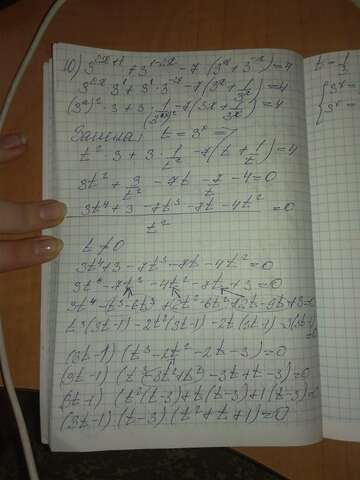 10) 3^{2x+1} + 3^{1-2x} - 7(3^x + 3^{-x}) = 4
3^{2x} · 3^1 + 3^1 · 3^{-2x} - 7(3^x + 1/3^x) = 4
(3^x)^2 · 3 + 3 · 1/(3^x)^2 - 7(3^x + 1/3^x) = 4
Замена: t = 3^x =>
t^2 3 + 3 · 1/t^2 - 7(t + 1/t) = 4
3t^2 + 3/t^2 - 7t - 7/t - 4 = 0
(3t^4 + 3 - 7t^3 - 7t - 4t^2)/t^2 = 0
t ≠ 0
3t^4 + 3 - 7t^3 - 7t - 4t^2 = 0
3t^4 - t^3 - 6t^3 + 2t^2 - 6t^2 + 2t - 9t + 3 = 0
t^3(3t-1) - 2t^2(3t-1) - 2t(3t-1) - 3(3t-1) = 0
(3t-1)(t^3 - 2t^2 - 2t - 3) = 0
(3t-1)(t^3 - 3t^2 + t^2 - 3t + t - 3) = 0
(3t-1)(t^2(t-3) + t(t-3) + 1(t-3)) = 0
(3t-1)(t-3)(t^2 + t + 1) = 0